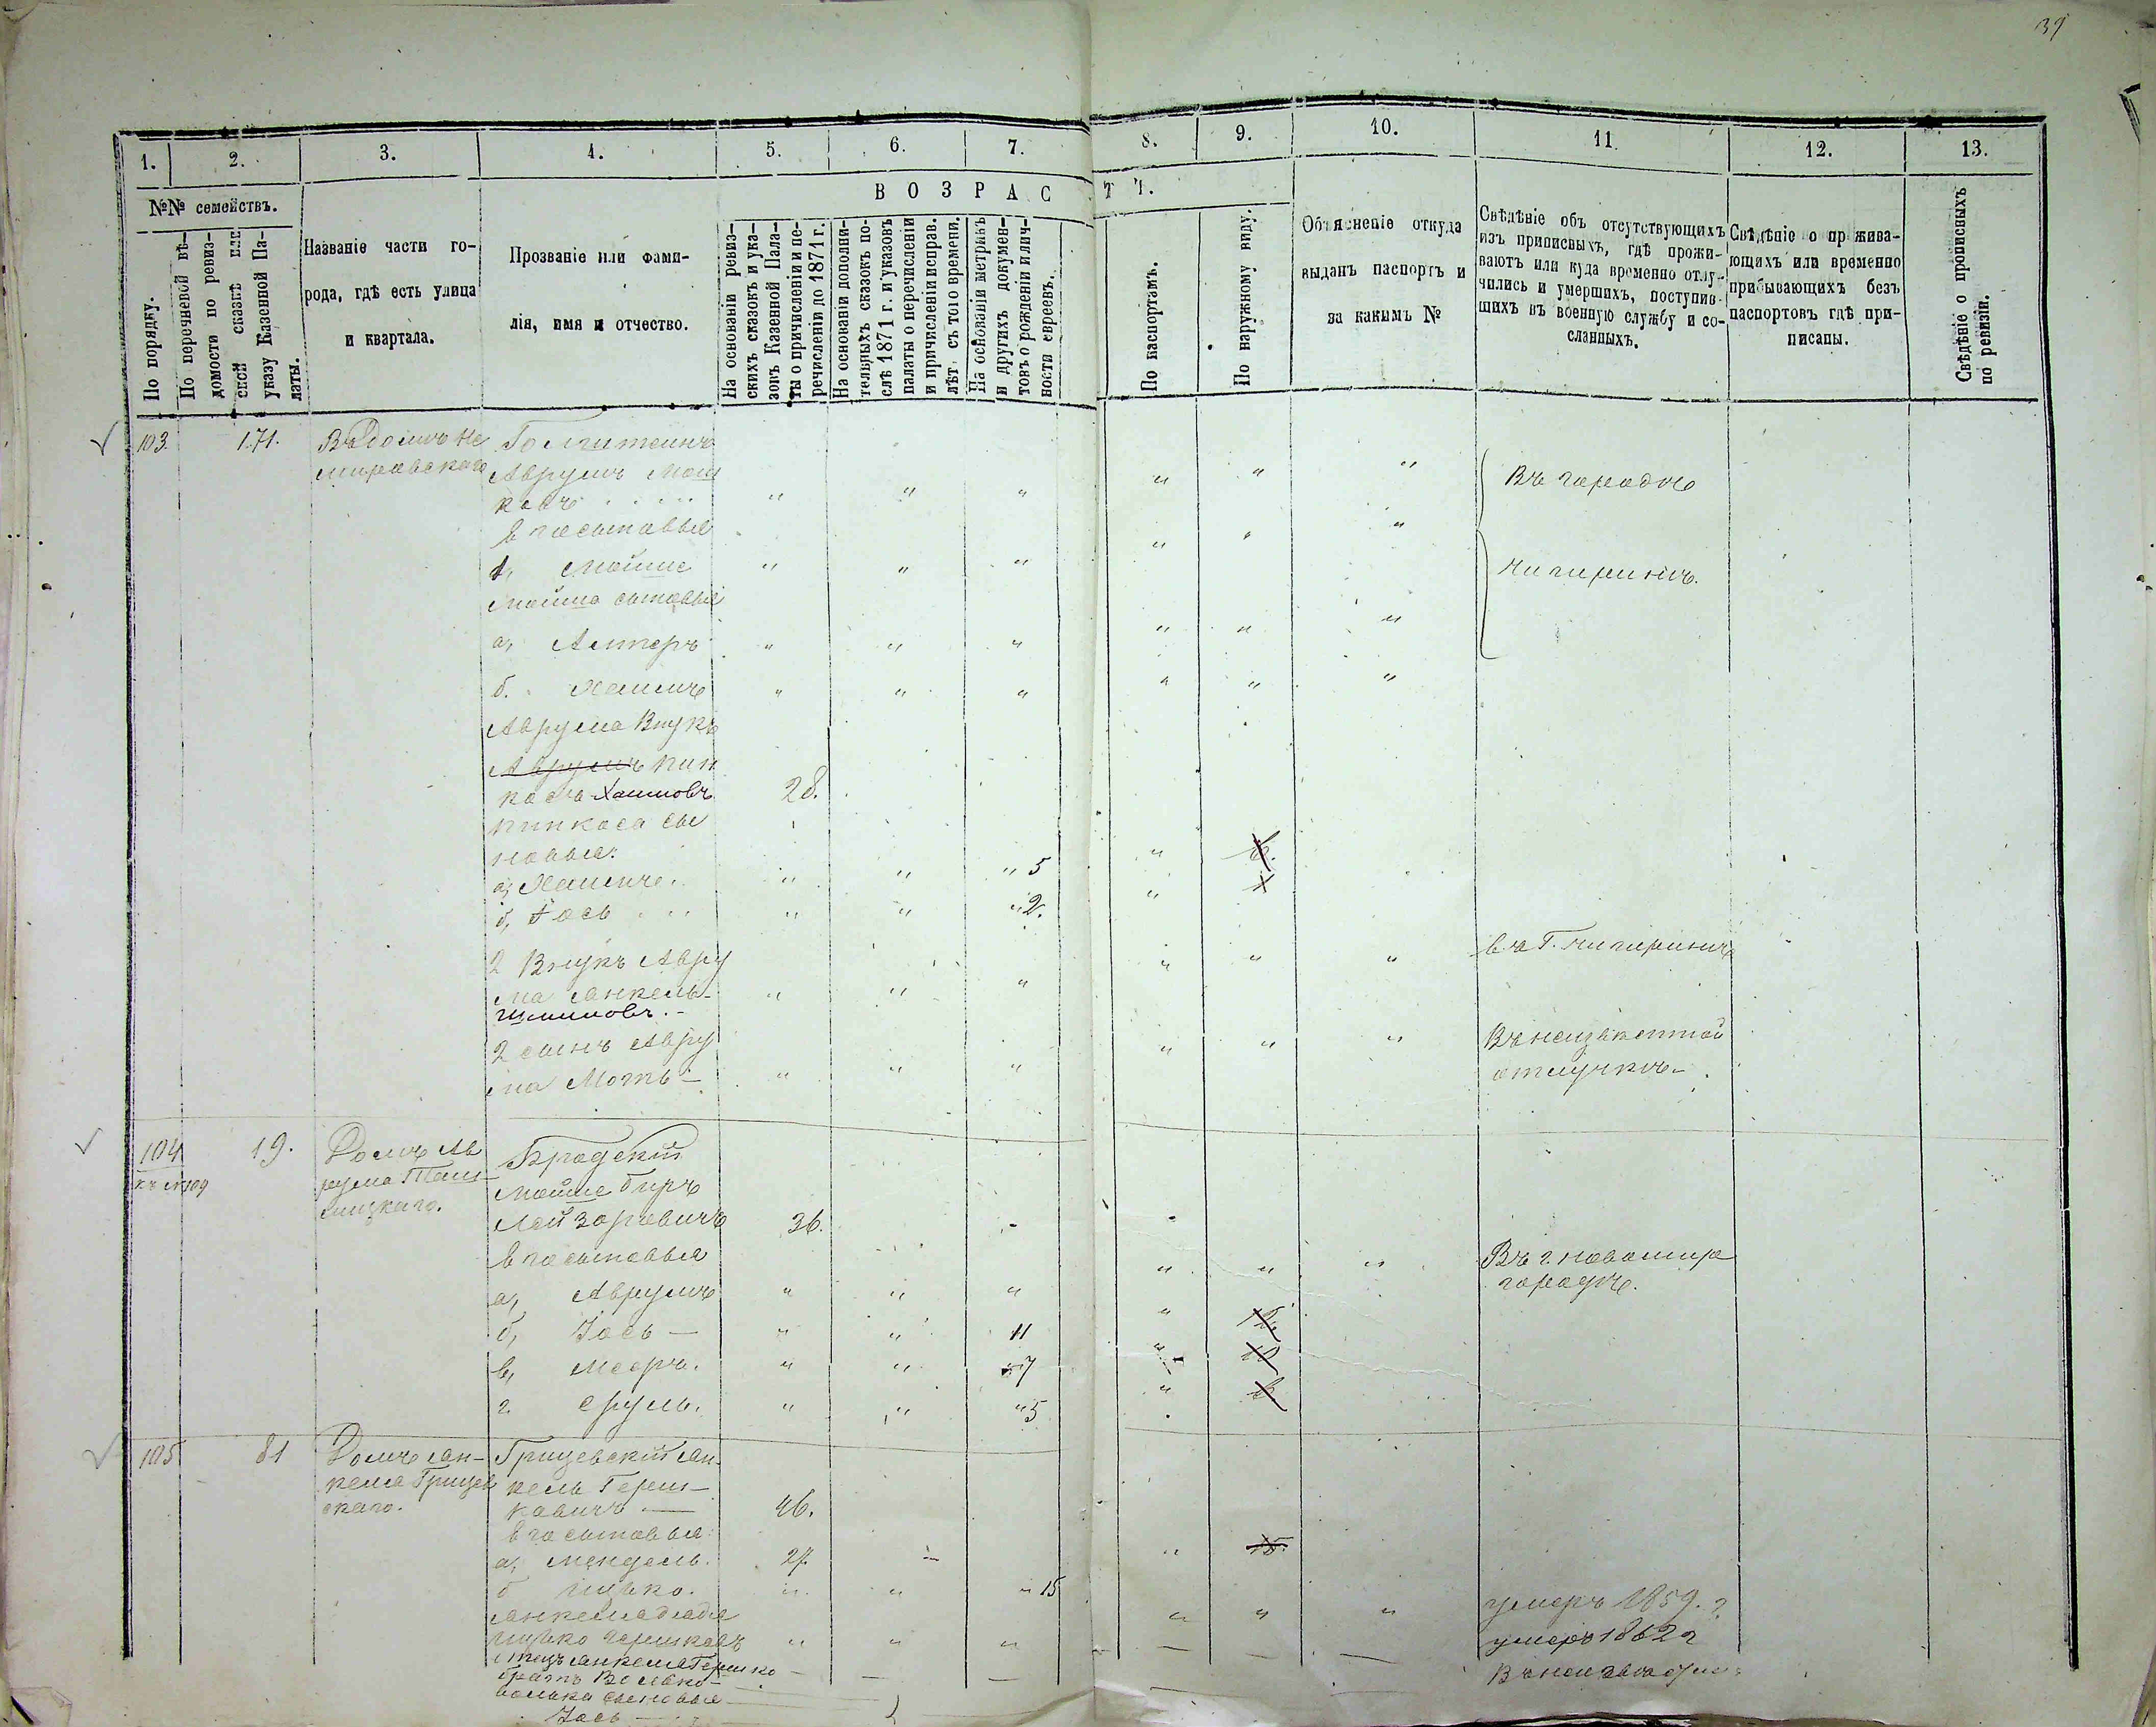 39
1. 2. 3. 4. 5. 6. 7. 8. 9. 10. 11. 12. 13.
№№ семействъ.
ВОЗРАСТЪ.
По порядку.
По перечневой вѣ-
домости по ревиз-
ской сказкѣ или
указу Казенной Па-
латы.
Названіе части го-
рода, гдѣ есть улица
и квартала.
Прозваніе или фами-
лія, имя и отчество.
На основаніи ревиз-
скихъ сказокъ и ука-
зовъ Казенной Пала-
ты о причисленіи и пе-
речисленіи до 1871 г.
На основаніи дополни-
тельныхъ сказокъ по-
слѣ 1871 г. и указовъ
палаты о перечисленіи
и причисленіи исправ.
лѣт. съ того времени.
На основаніи метрикъ
и другихъ докумен-
товъ о рожденіи и лич-
ности евреевъ.
По паспортамъ.
По наружному виду.
Объясненіе откуда
выданъ паспортъ и
за какимъ №
Свѣдѣніе объ отсутствующихъ
изъ приписныхъ, гдѣ прожи-
ваютъ или куда временно отлу-
чились и умершихъ, поступив-
шихъ въ военную службу и со-
сланныхъ.
Свѣдѣніе о прожива-
ющихъ или временно
прибывающихъ безъ
паспортовъ гдѣ при-
писаны.
Свѣдѣніе о прописныхъ
по ревизіи.
103. 171. Въ домѣ Не
мировскаго
Аврумъ Мош
ковъ
Въ городѣ
его сыновья
1, Мойше
Чигиринѣ.
Мойша сыновья
а, Алтеръ
б. Хаимъ
Аврума Внукъ
Аврумъ Пин
касъ Хаимовъ 28.
Пинкаса сы
новья:
а, Хаимъ 5
б, Іось 2.
2 Внукъ Авру
ма Янкель
въ Г. Чигиринѣ
2 сынъ Авру
ма Моть
Въ неизвѣстной
отлучкѣ
104 19. Домъ Ав
рума
Бродскій
Мойше Беръ
Лейзоровичъ 36.
его сыновья
а, Аврумъ
Въ г. Новомир
городѣ.
б, Іось 11
в, Мееръ. 7
г. Сруль. 5
105 81 Домъ Ян-
келя Грищев
скаго.
Грищевскій Ян-
кель Герш-
ковичъ 46.
его сыновья
а, Мендель. 27.
б Ицько. 15 15.
Янкеля дядя
Ицько Гершковъ
умеръ 1859. г.
Отецъ Янкеля Гершко
умеръ 1862 г
братъ Волько
Волька сыновья
Іось